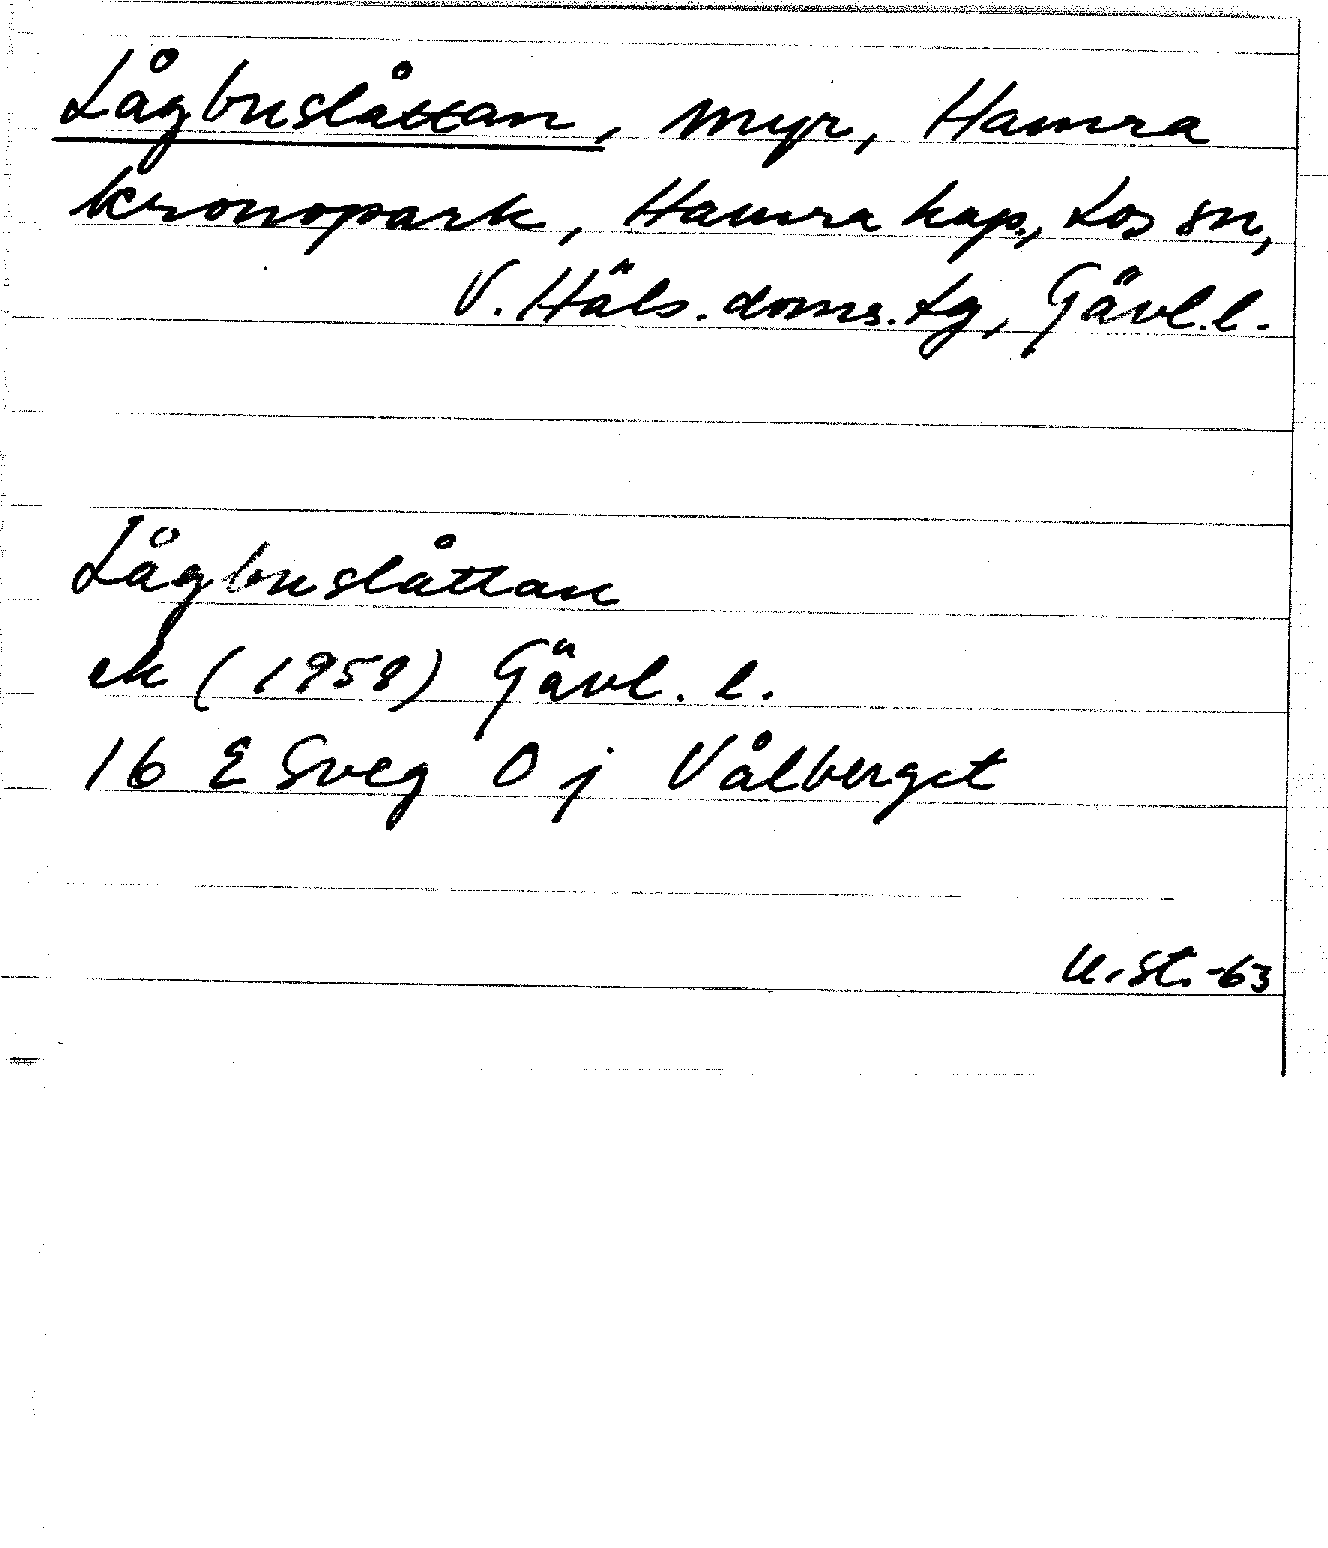 Lågbuslåttan, myr, Hamra
kronopark, Hamra kap., Los sn,
V. Häls. doms. tg, Gävl. l.
Lågbuslåttan
ek (1958) Gävl. l.
16 E Sveg 0 j Vålberget
U. St. -63